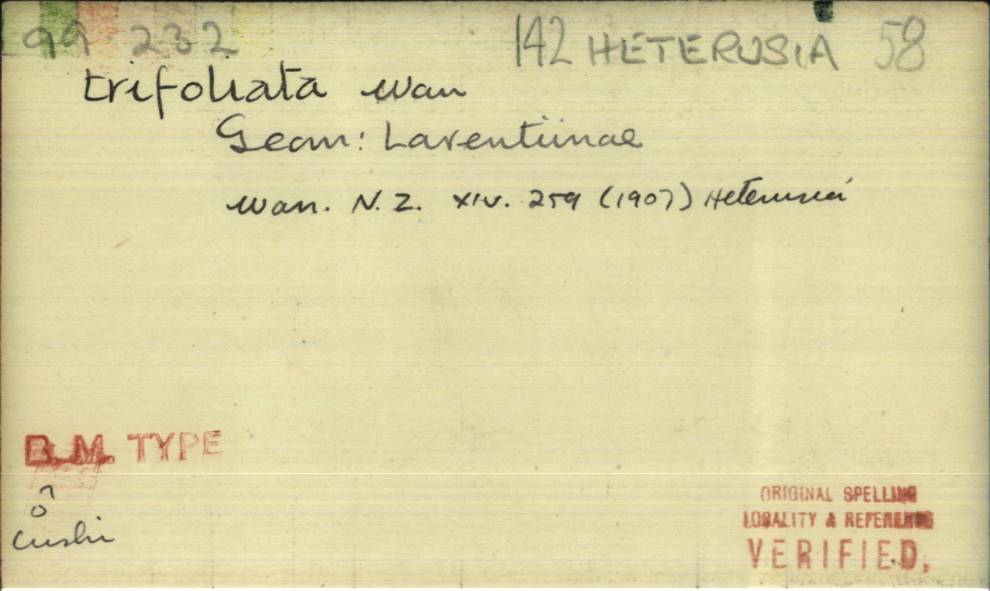 99 232 142 HETERUSIA 58
trifoliata Warr
Geom: Larentiinae
Warr. N. Z. XIV. 259 (1907) Heterusia
B. M. TYPE
♂
Cushi
ORIGINAL SPELLING
LOCALITY & REFERENCE
VERIFIED.